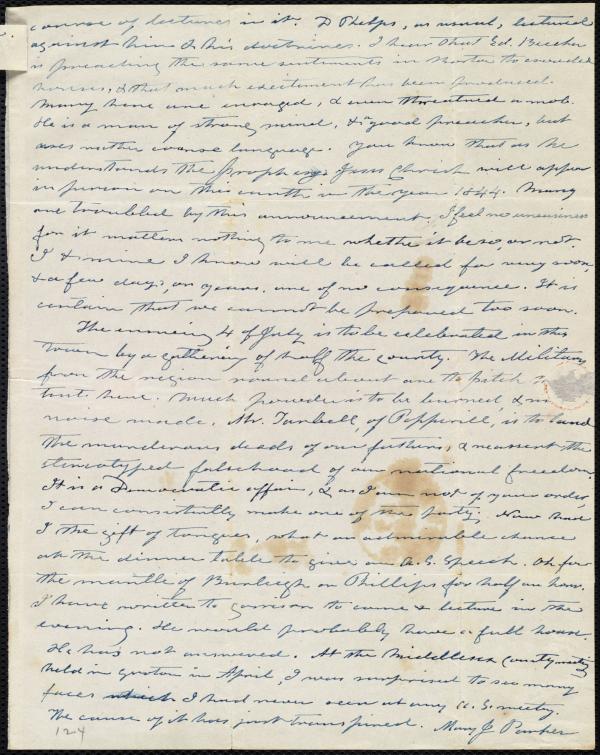 course of lectures in it. D Phelps, as usual, lectured
against him & his doctrines. I hear that Ed. Beecher
is preaching the same sentiments in Boston to crowded
houses, & that much excitement has been produced.
Many here are enraged, & even threatened a mob.
He is a man of strong mind, & a good preacher, but
uses rather coarse language. You know that as he
understands the prophecy Jesus Christ will appear
in person on this earth, in the year 1844. Many
are troubled by this announcement, I feel no uneasiness
for it matters nothing to me whether it be so, or not.
I & mine I know will be called for very soon,
& a few days, or years, are of no consequence. It is
certain that we cannot be prepared too soon.
The ensuing 4 of July is to be celebrated in this
town by a gathering of half the county. The Military
from the region round about are to pitch
tents here. Much powder is to be burned, &
noise made. Mr. Tarbell, of Pepperill, is to laud
the murderous deeds of our fathers, & reassert the
stereotyped falsehood of our national freedom.
It is a Democratic affair, & as I am not of your order,
I can consistently make one of the party. Now had
I the gift of tongues, what an admirable chance
at the dinner table to give an A.S. Speech. Oh for
the mantle of Burleigh or Phillips for half an hour.
I have written to Garrison to come & lecture in the
evening. He would probably have a full house.
He has not answered. At the Middlesex County meeting
held in Groton in April, I was surprised to see many
faces which I had never seen at any A.S. meeting.
The cause of it has just transpired. Mary J Parker
124